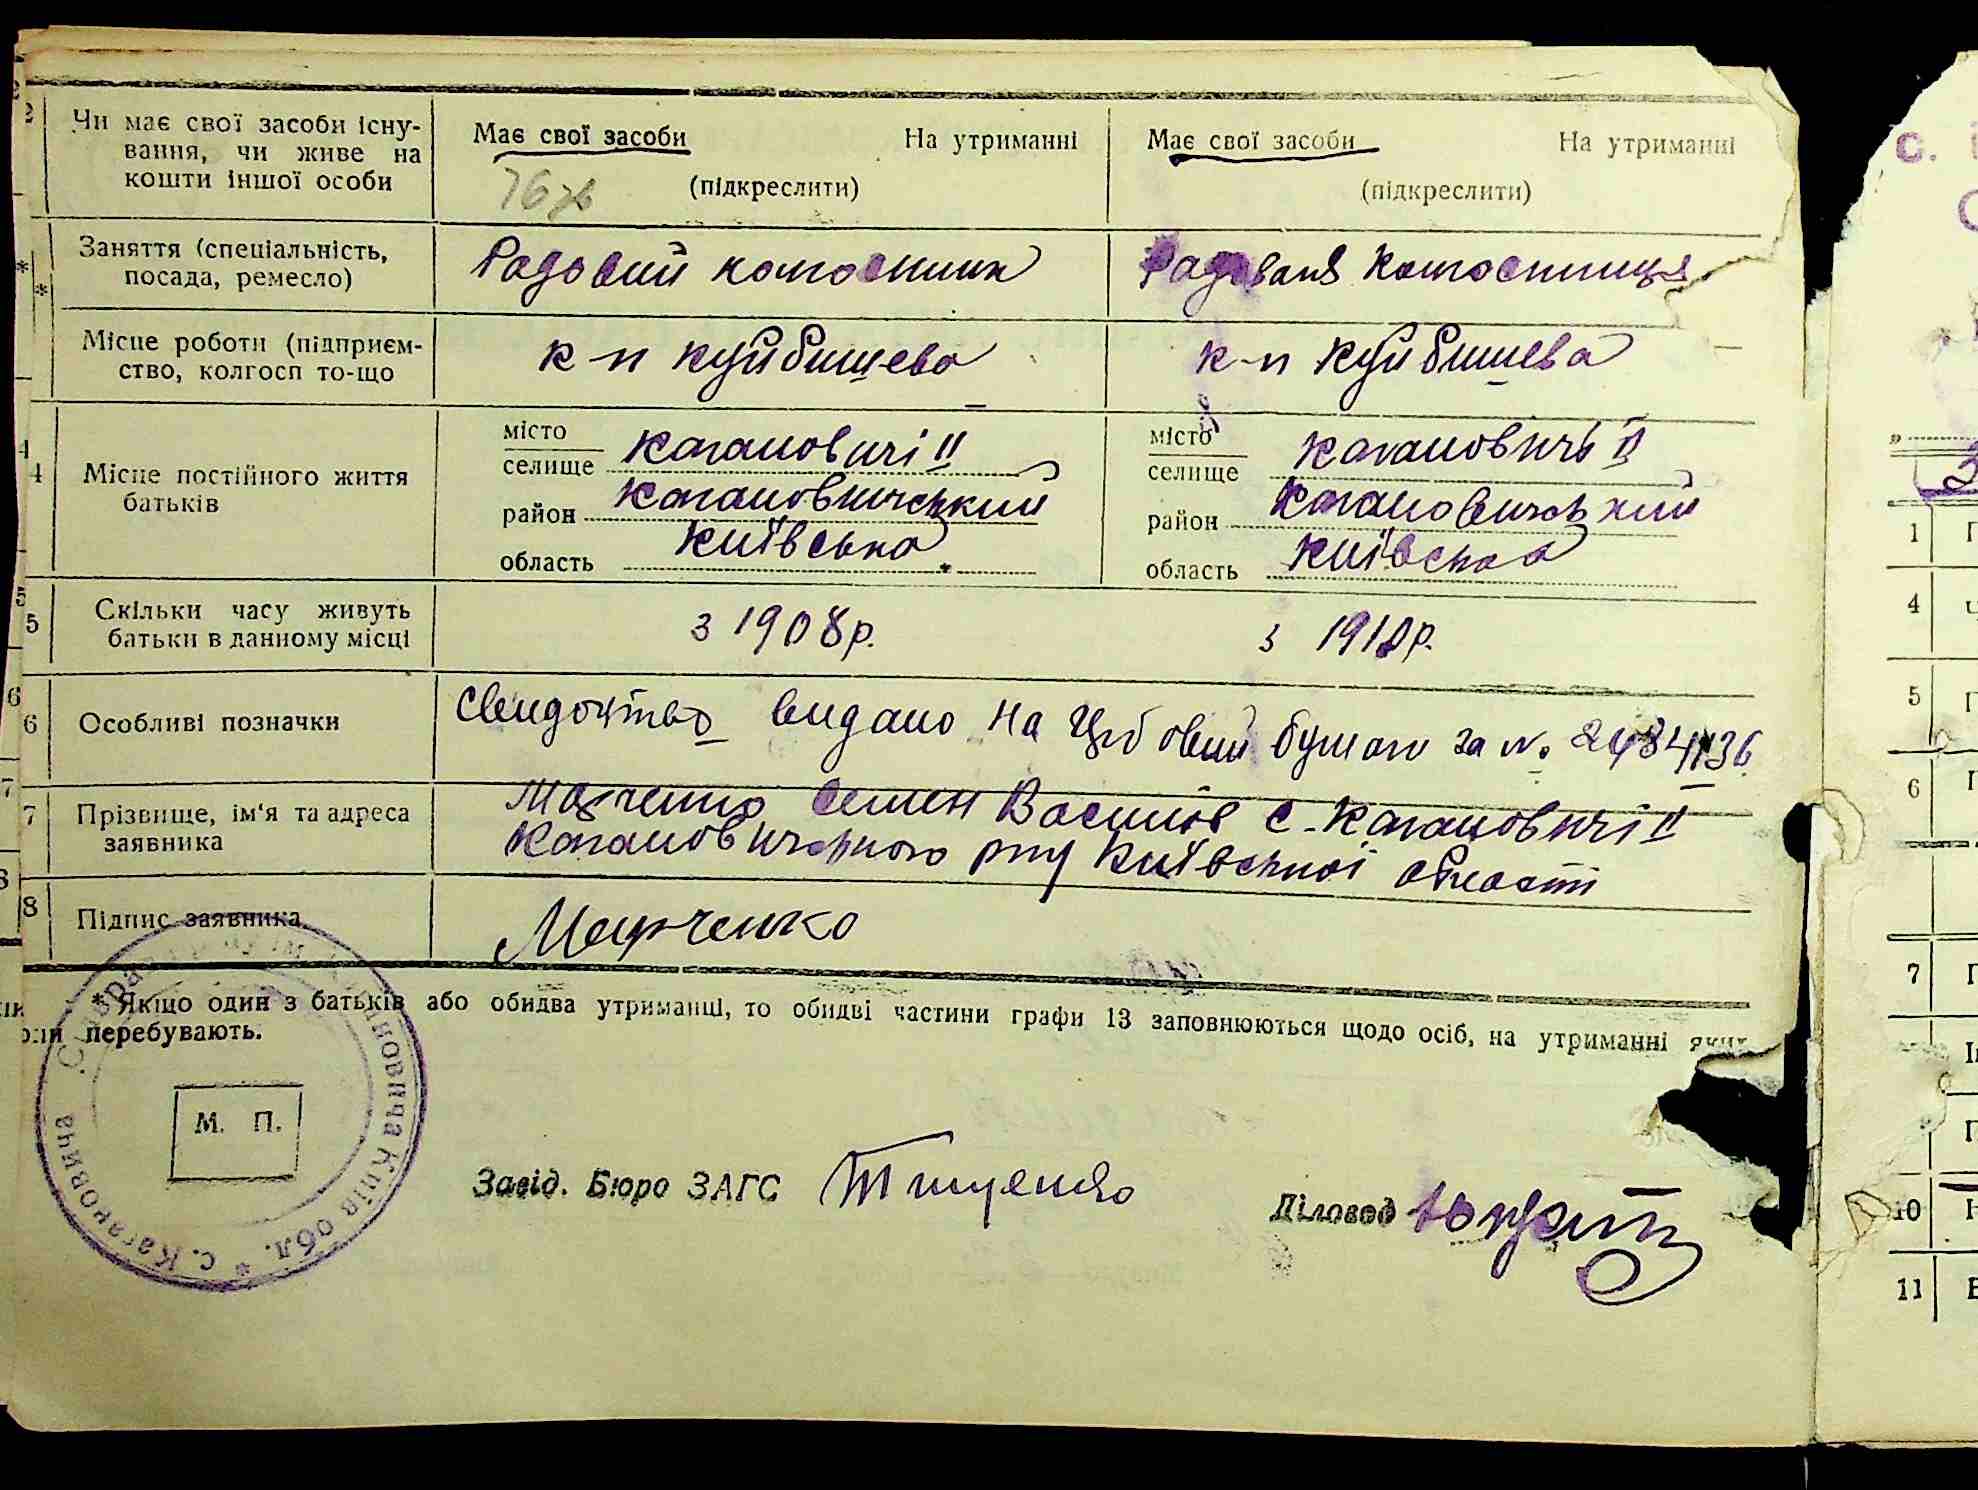 Чи має свої засоби існу-
вання, чи живе на
кошти іншої особи
Має свої засоби На утриманні
(підкреслити)
Має свої засоби На утриманні
(підкреслити)
Заняття (спеціальність,
посада, ремесло)
Радовий колгоспник
Радовая колгоспниця
Місце роботи (підприєм-
ство, колгосп то-що
к-п Куйбишева
к-п Куйбишева
4 Місце постійного життя
батьків
місто
селище Кагановичі ІІ
район Кагановичський
область Київська
місто
селище Кагановичі ІІ
район Кагановичський
область Київська
5 Скільки часу живуть
батьки в данному місці
з 1908 р.
з 1912 р.
6 Особливі позначки
Свидоцтво видано на бумаги за №
7 Прізвище, ім'я та адреса
заявника
Марченко Семен Васильов с. Кагановичі ІІ
р-ну Київської області
8 Підпис заявника
Марченко
* Якщо один з батьків або обидва утриманці, то обидві частини графи 13 заповнюються щодо осіб, на утриманні яких
перебувають.
М. П.
Київ обл. * с. Кагановича
Завід. Бюро ЗАГС Тищенко
Діловод
с.
1
4
5
6
7
10
11